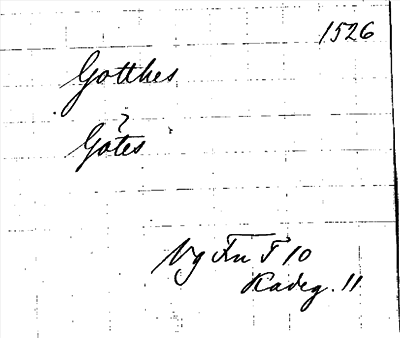 1526
Gotthes
?
Götes
Vg Fn F 10
Kadeg. 11